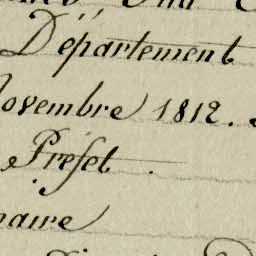 Département
Novembre 1812.
Préfet.
maire